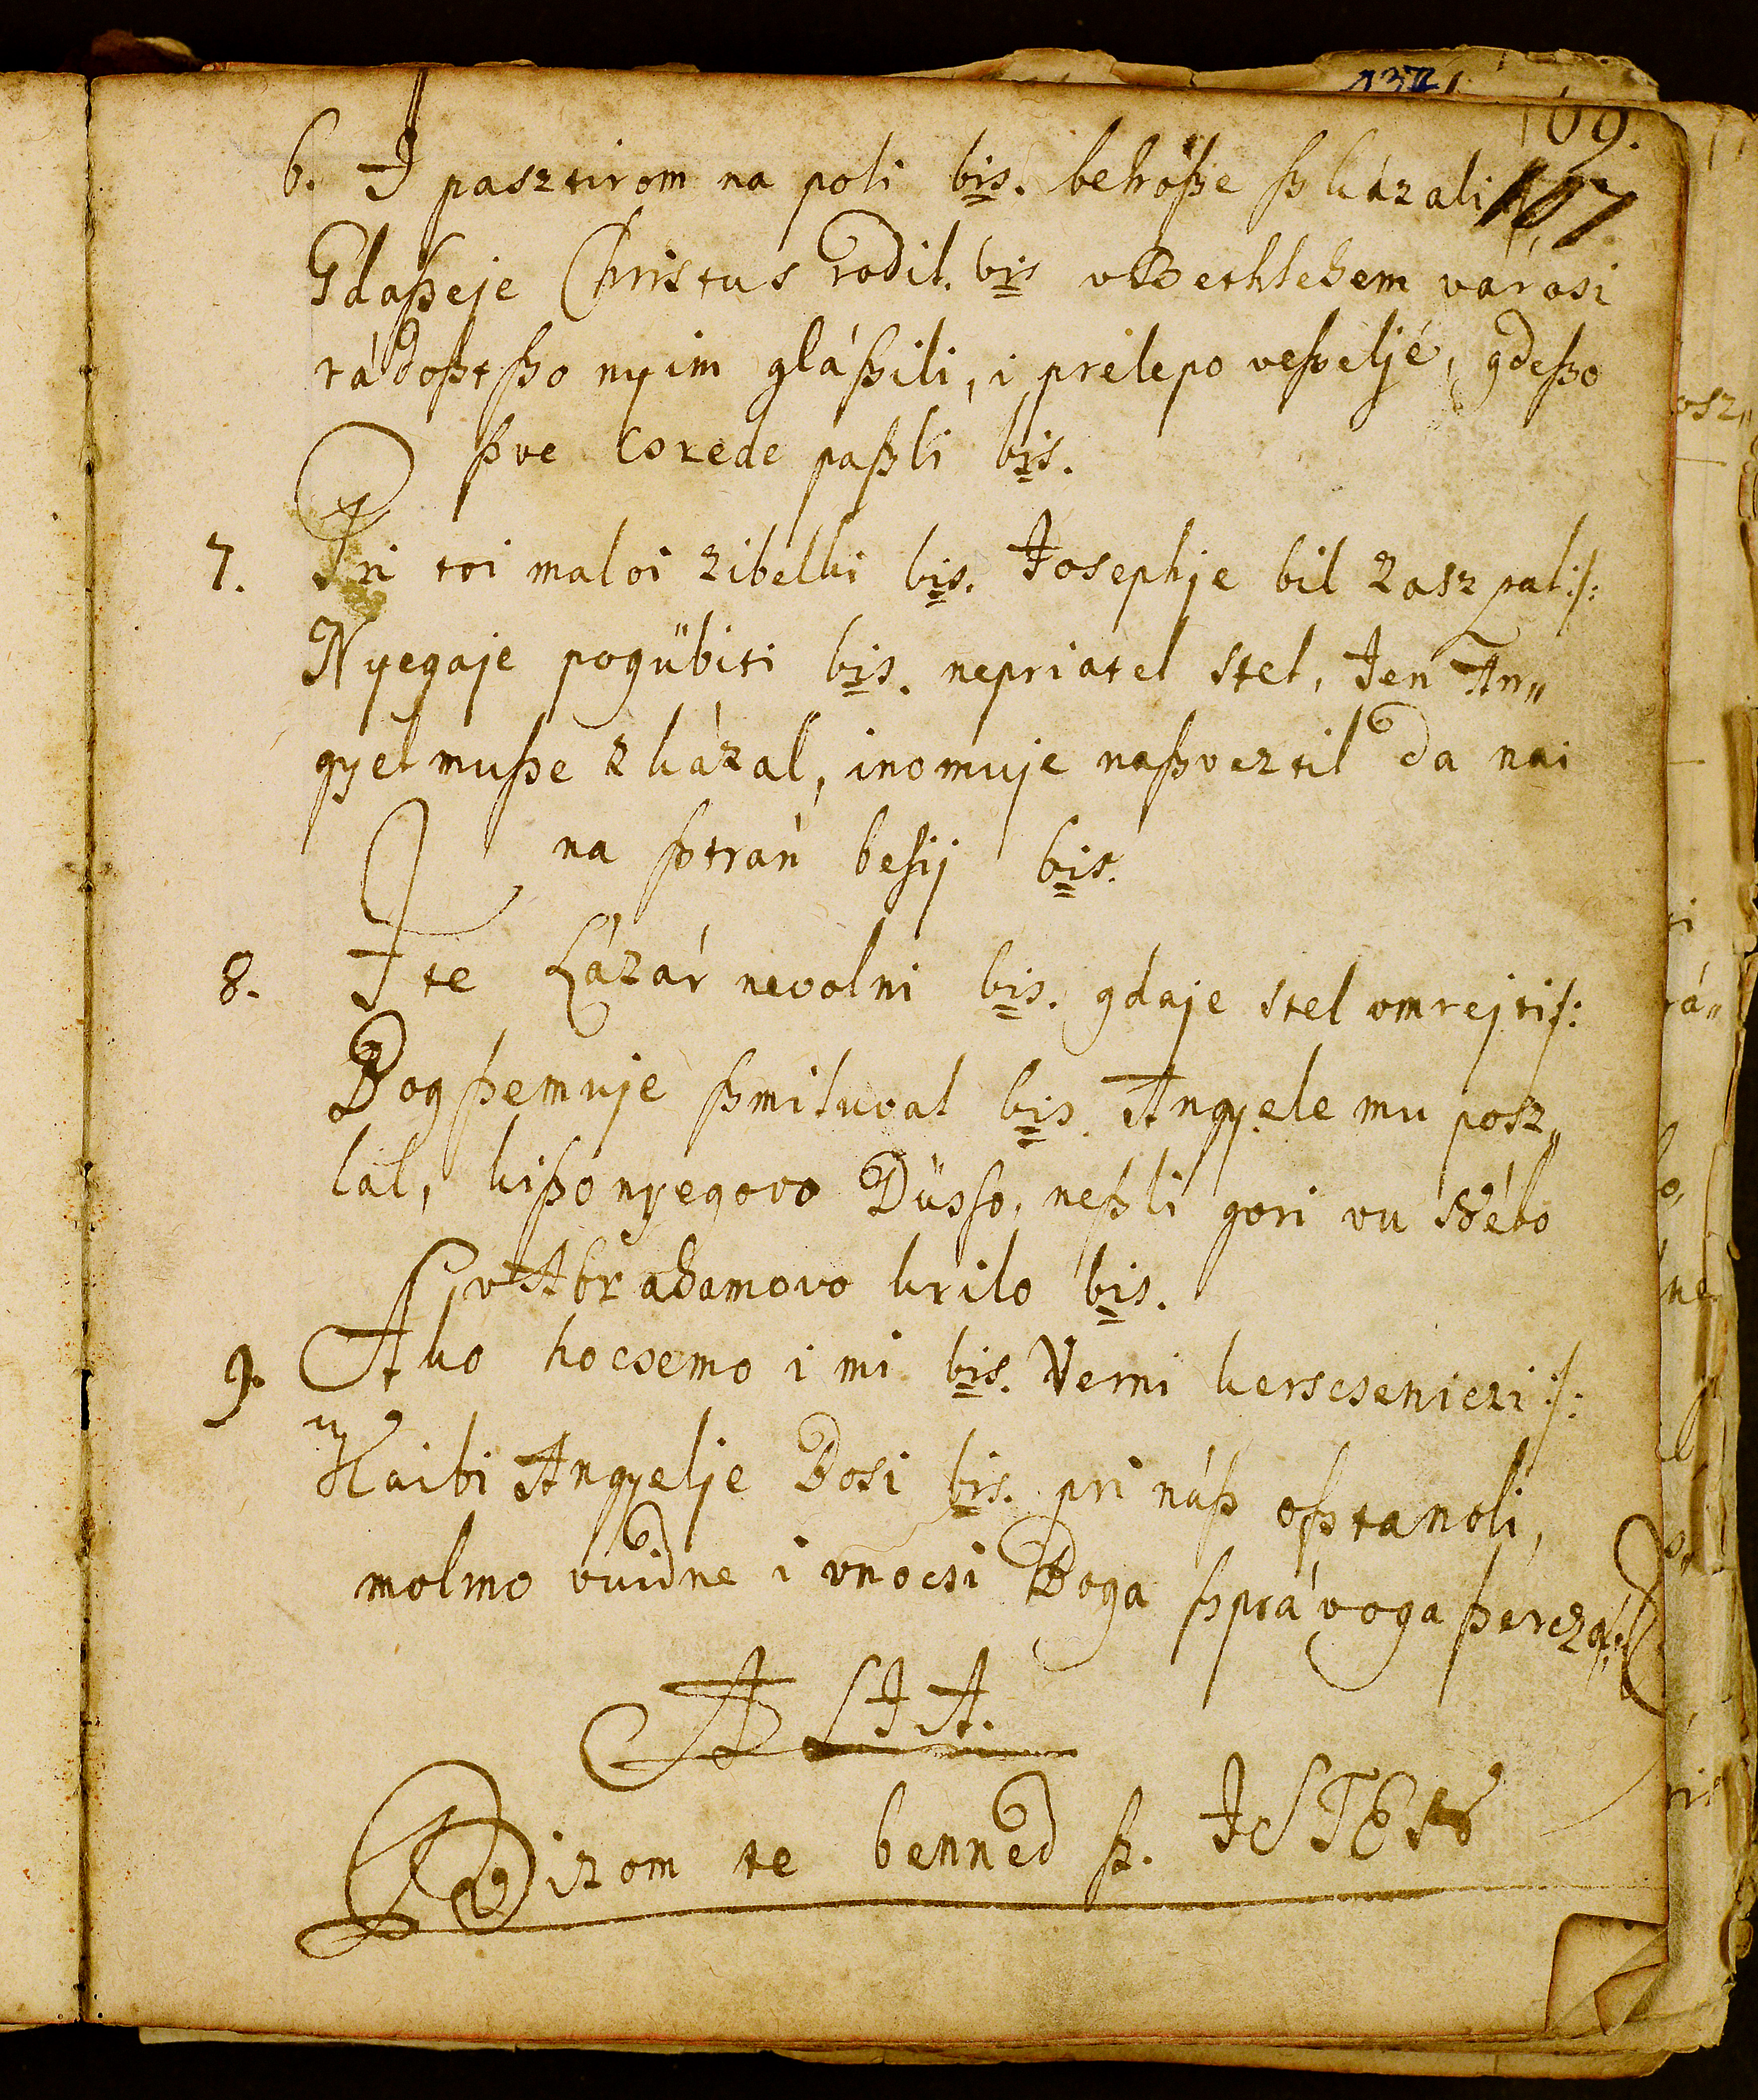 109.
107
6. I pasztirom na poli bis. behöße ßkázali :/:
Gdaßeje Christus rodil. bis vBethlehem városi
rádoßtßo nyim gláßili, i prelepo veßeljé, gdeßo
ßve corede paßli bis.
7. Pri toi maloi zibelki bis. Josephje bil zaszpal :/:
Nyegaje pogübiti bis. nepriatel stel, Jen An„
gyel muße zkázal, inomuje naßveztil da nai
na ßtrán besij bis.
8. I te Lázár nevolni bis. gdaje stel vmrejti :/:
Bog ßemuje ßmiluval bis. Angyele mu posz„
lal, kißo nyegovo Düsso, neßli gori vu Nébo
vAbrahamovo krilo bis.
9. Ako hocsemo i mi bis. Verni kerscseniczi :/:
Kaibi Angyelje Bosi bis. pri náß oßtanoli,
molmo vuidne i vnocsi Boga ßprávoga ßercza :/:
ALIA.
Bizom te benned ß. ISTEN